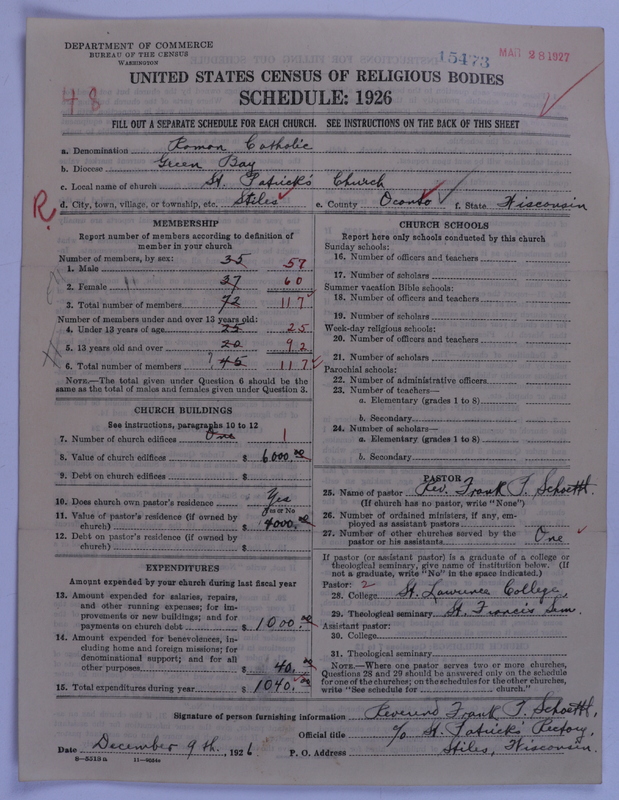 DEPARTMENT OF COMMERCE
BUREAU OF THE CENSUS
WASHINGTON
15473
MAR 28 1927
UNITED STATES CENSUS OF RELIGIOUS BODIES
48
SCHEDULE: 1926
FILL OUT A SEPARATE SCHEDULE FOR EACH CHURCH. SEE INSTRUCTIONS ON THE BACK OF THIS SHEET
a. Denomination Roman Catholic
b. Diocese Green Bay
c. Local name of church St. Patrick's Church
R. d. City, town, village, or township, etc. Stiles e. County Oconto f. State Wisconsin
MEMBERSHIP
Report number of members according to definition of
member in your church
Number of members, by sex:
1. Male 35 57
2. Female 37 60
3. Total number of members 72 117
Number of members under and over 13 years old:
4. Under 13 years of age 25 25
5. 13 years old and over 20 92
6. Total number of members ? 45 117
NOTE.—The total given under Question 6 should be the
same as the total of males and females given under Question 3.
CHURCH BUILDINGS
See instructions, paragraphs 10 to 12
7. Number of church edifices One 1
8. Value of church edifices $ 6000.00
9. Debt on church edifices $
10. Does church own pastor's residence Yes
Yes or No
11. Value of pastor's residence (if owned by
church) $ 4000.00
12. Debt on pastor's residence (if owned by
church) $
EXPENDITURES
Amount expended by your church during last fiscal year
13. Amount expended for salaries, repairs,
and other running expenses; for im-
provements or new buildings; and for
payments on church debt $ 1000.00
14. Amount expended for benevolences, in-
cluding home and foreign missions; for
denominational support; and for all
other purposes $ 40.00
15. Total expenditures during year $ 1040.00
CHURCH SCHOOLS
Report here only schools conducted by this church
Sunday schools:
16. Number of officers and teachers
17. Number of scholars
Summer vacation Bible schools:
18. Number of officers and teachers
19. Number of scholars
Week-day religious schools:
20. Number of officers and teachers
21. Number of scholars
Parochial schools:
22. Number of administrative officers
23. Number of teachers—
a. Elementary (grades 1 to 8)
b. Secondary
24. Number of scholars—
a. Elementary (grades 1 to 8)
b. Secondary
PASTOR
25. Name of pastor Rev. Frank T. Schoettl.
(If church has no pastor, write "None")
26. Number of ordained ministers, if any, em-
ployed as assistant pastors
27. Number of other churches served by the
pastor or his assistants One
If pastor (or assistant pastor) is a graduate of a college or
theological seminary, give name of institution below. (If
not a graduate, write "No" in the space indicated.)
Pastor: 2
28. College St. Lawrence College,
29. Theological seminary St. Francis Sem.
Assistant pastor:
30. College
31. Theological seminary
NOTE.—Where one pastor serves two or more churches,
Questions 28 and 29 should be answered only on the schedule
for one of the churches; on the schedules for the other churches,
write "See schedule for church."
Signature of person furnishing information Reverend Frank T. Schoettl,
Official title c/o St. Patrick's Rectory,
Date December 9th, 1926 P. O. Address Stiles, Wisconsin.
8—5519a 11—9054a